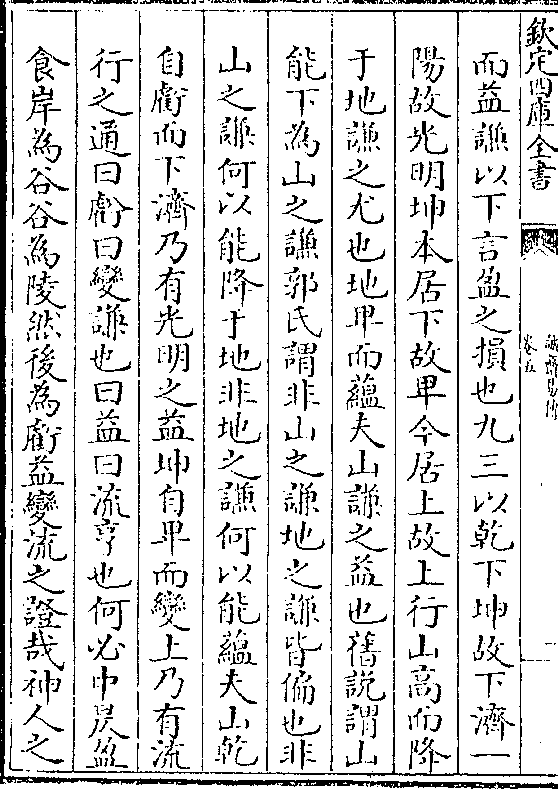 欽定四庫全書
誠齋易傳
卷五
二
而益謙以下言盈之損也九三以乾下坤故下濟一
陽故光明坤本居下故卑今居上故上行山高而降
于地謙之尤也地卑而蘊夫山謙之益也舊説謂山
能下為山之謙郭氏謂非山之謙地之謙皆偏也非
山之謙何以能降于地非地之謙何以能蘊夫山乾
自虧而下濟乃有光明之益坤自卑而變上乃有流
行之通曰虧曰變謙也曰益曰流亨也何必中昃盈
食岸為谷谷為陵然後為虧益變流之證哉神人之